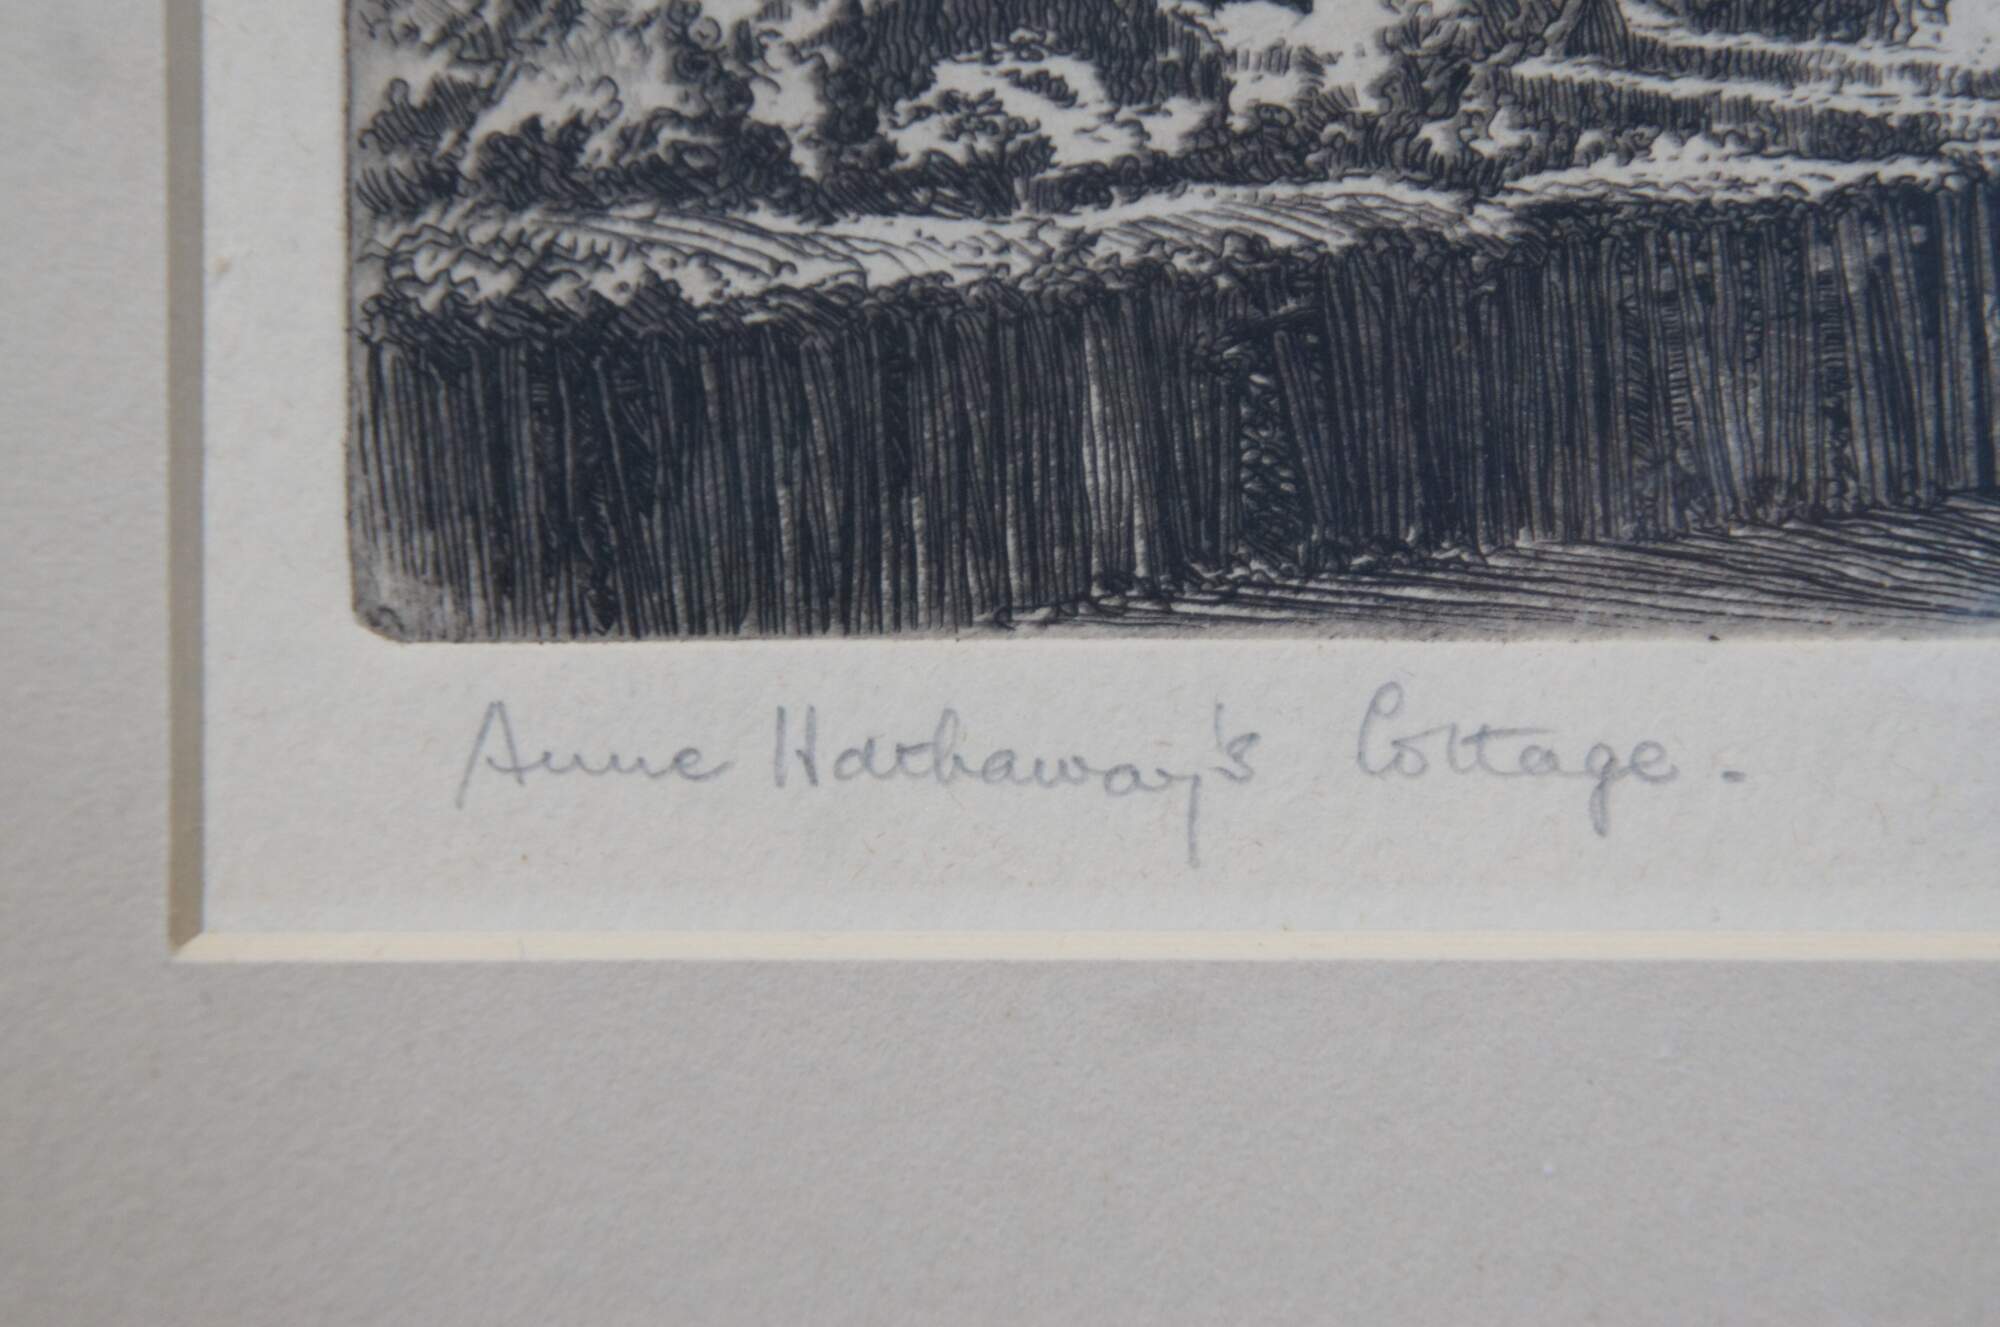 Anne Hathaway's Cottage.